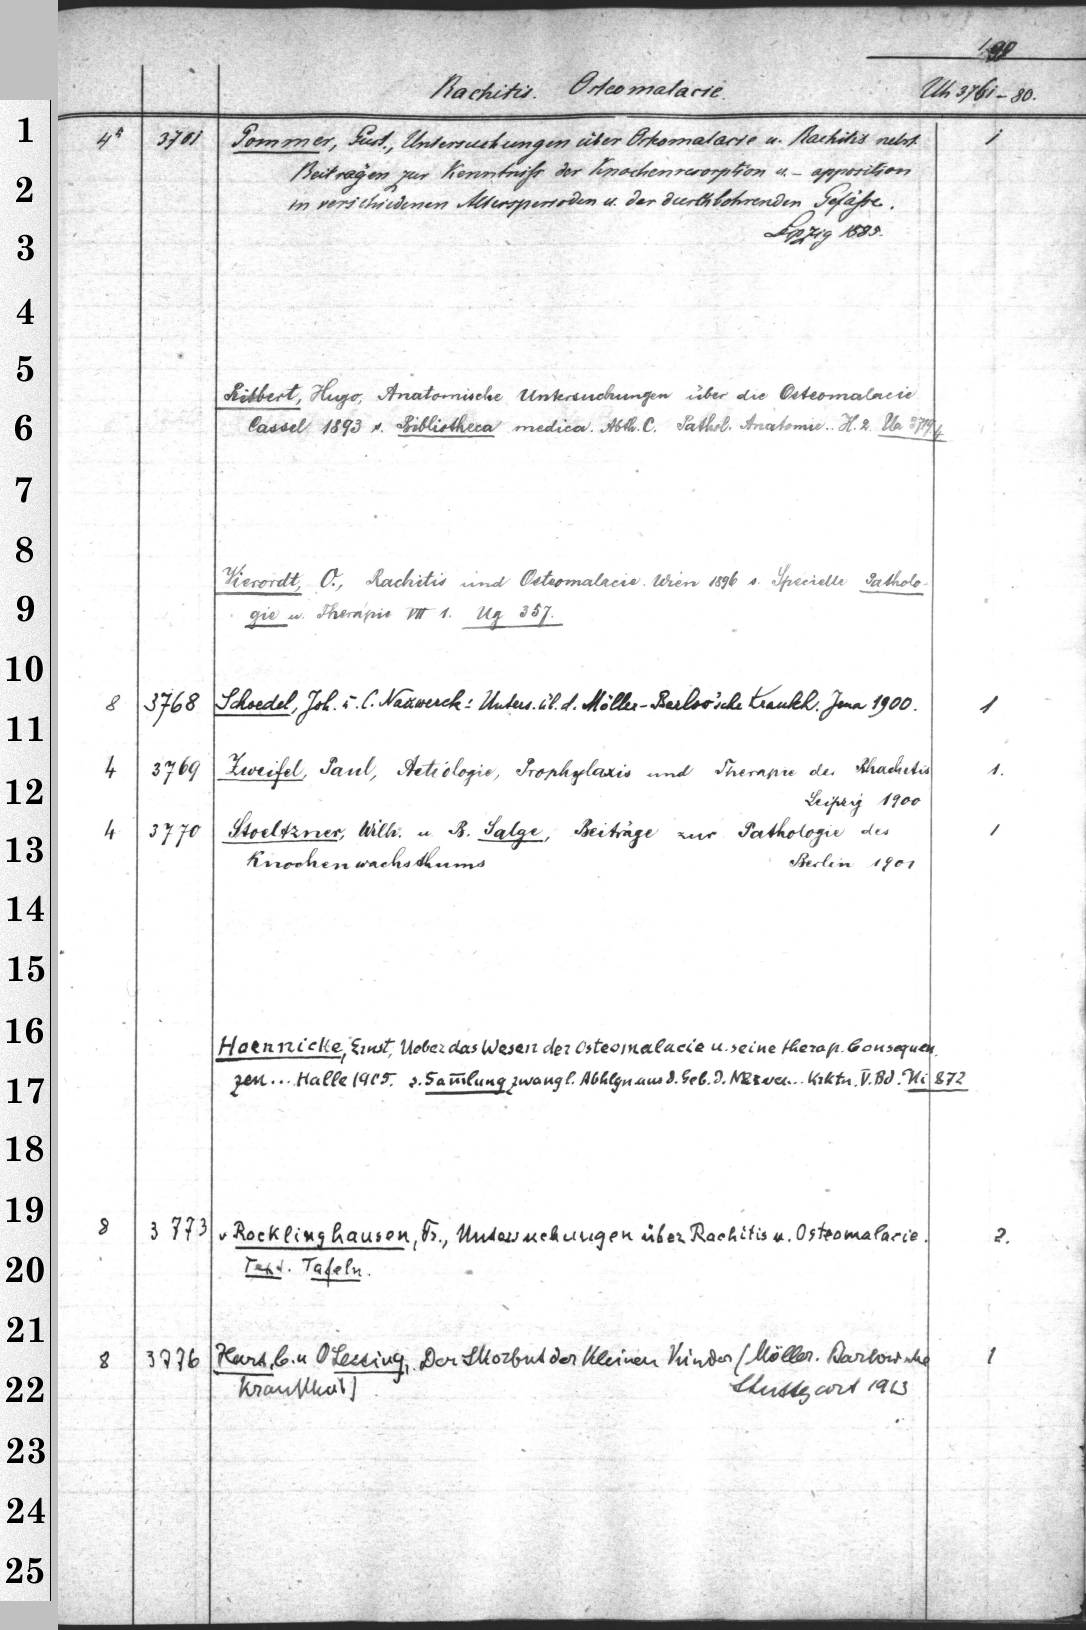 Rachitis. Osteomalacie. Uh 3761-80.
1
4° 3761 Pommer, Gust., Untersuchungen über Osteomalacie u. Rachitis nebst 1
2
Beiträgen zur Kenntniss der Knochenresorption u. - apposition
in verschiedenen Altersperioden u. der durchbohrenden Gefässe.
3
Leipzig 1885.
4
5
Ribbert, Hugo, Anatomische Untersuchungen über die Osteomalacie
6
Cassel 1893 s. Bibliotheca medica. Abth. C. Pathol. Anatomie.. H. 2.
7
8
Vierordt, O., Rachitis und Osteomalacie. Wien 1896 s. Specielle Patholo-
9
gie u. Therapie VII 1. Ug 357.
10
8 3768 Schoedel, Joh. u. C. Nauwerck: Unters. üb. d. Möller-Barlow'sche Krankh. Jena 1900. 1
11
4 3769 Zweifel, Paul, Aetiologie, Prophylaxis und Therapie der Rhachitis 1.
12
Leipzig 1900
4 3770 Stoeltzner, Wilh. u B. Salge, Beiträge zur Pathologie des 1
13
Knochenwachsthums Berlin 1901
14
15
16
Hoennicke, Ernst, Ueber das Wesen der Osteomalacie u. seine therap. Consequen
17
zen... Halle 1905. s. Sammlung zwangl. Abhlgn aus d. Geb. d. Nerven.. Krktn. V. Bd. Ui 872
18
19
8 3773 v Recklinghausen, Fr., Untersuchungen über Rachitis u. Osteomalacie. 2.
20
Text. Tafeln.
21
8 3776 Hart, C. u O Lessing, Der Skorbut der kleinen Kinder (Möller. Barlowsche 1
22
Krankheit) Stuttgart 1913
23
24
25